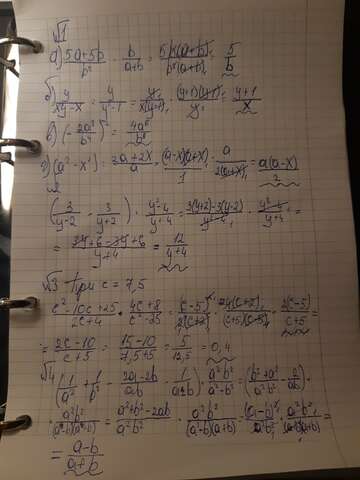 √1
а) (5a+5b)/b² · b/(a+b) = 5b(a+b)/(b²(a+b)) = 5/b
б) y/(xy-x) : y/(y²-1) = y/(x(y-1)) · (y-1)(y+1)/y = (y+1)/x
в) (-2a³/b⁴)² = 4a⁶/b⁸
г) (a²-x²) : (2a+2x)/a = (a-x)(a+x)/1 · a/(2(a+x)) = a(a-x)/2
√2
(3/(y-2) - 3/(y+2)) · (y²-4)/(y+4) = (3(y+2)-3(y-2))/(y²-4) · (y²-4)/(y+4) =
= (3y+6-3y+6)/(y+4) = 12/(y+4)
√3 При c = 7,5
(c²-10c+25)/(2c+4) · (4c+8)/(c²-25) = (c-5)²/(2(c+2)) · 4(c+2)/((c+5)(c-5)) = 2(c-5)/(c+5) =
= (2c-10)/(c+5) = (15-10)/(7,5+5) = 5/12,5 = 0,4
√4 (1/a² + 1/b² - (2a-2b)/(ab) · 1/(a-b)) · a²b²/(a²-b²) = ((b²+a²)/(a²b²) - 2/(ab)) ·
· a²b²/((a-b)(a+b)) = (a²+b²-2ab)/(a²b²) · a²b²/((a-b)(a+b)) = (a-b)²/(a²b²) · a²b²/((a-b)(a+b)) =
= (a-b)/(a+b)